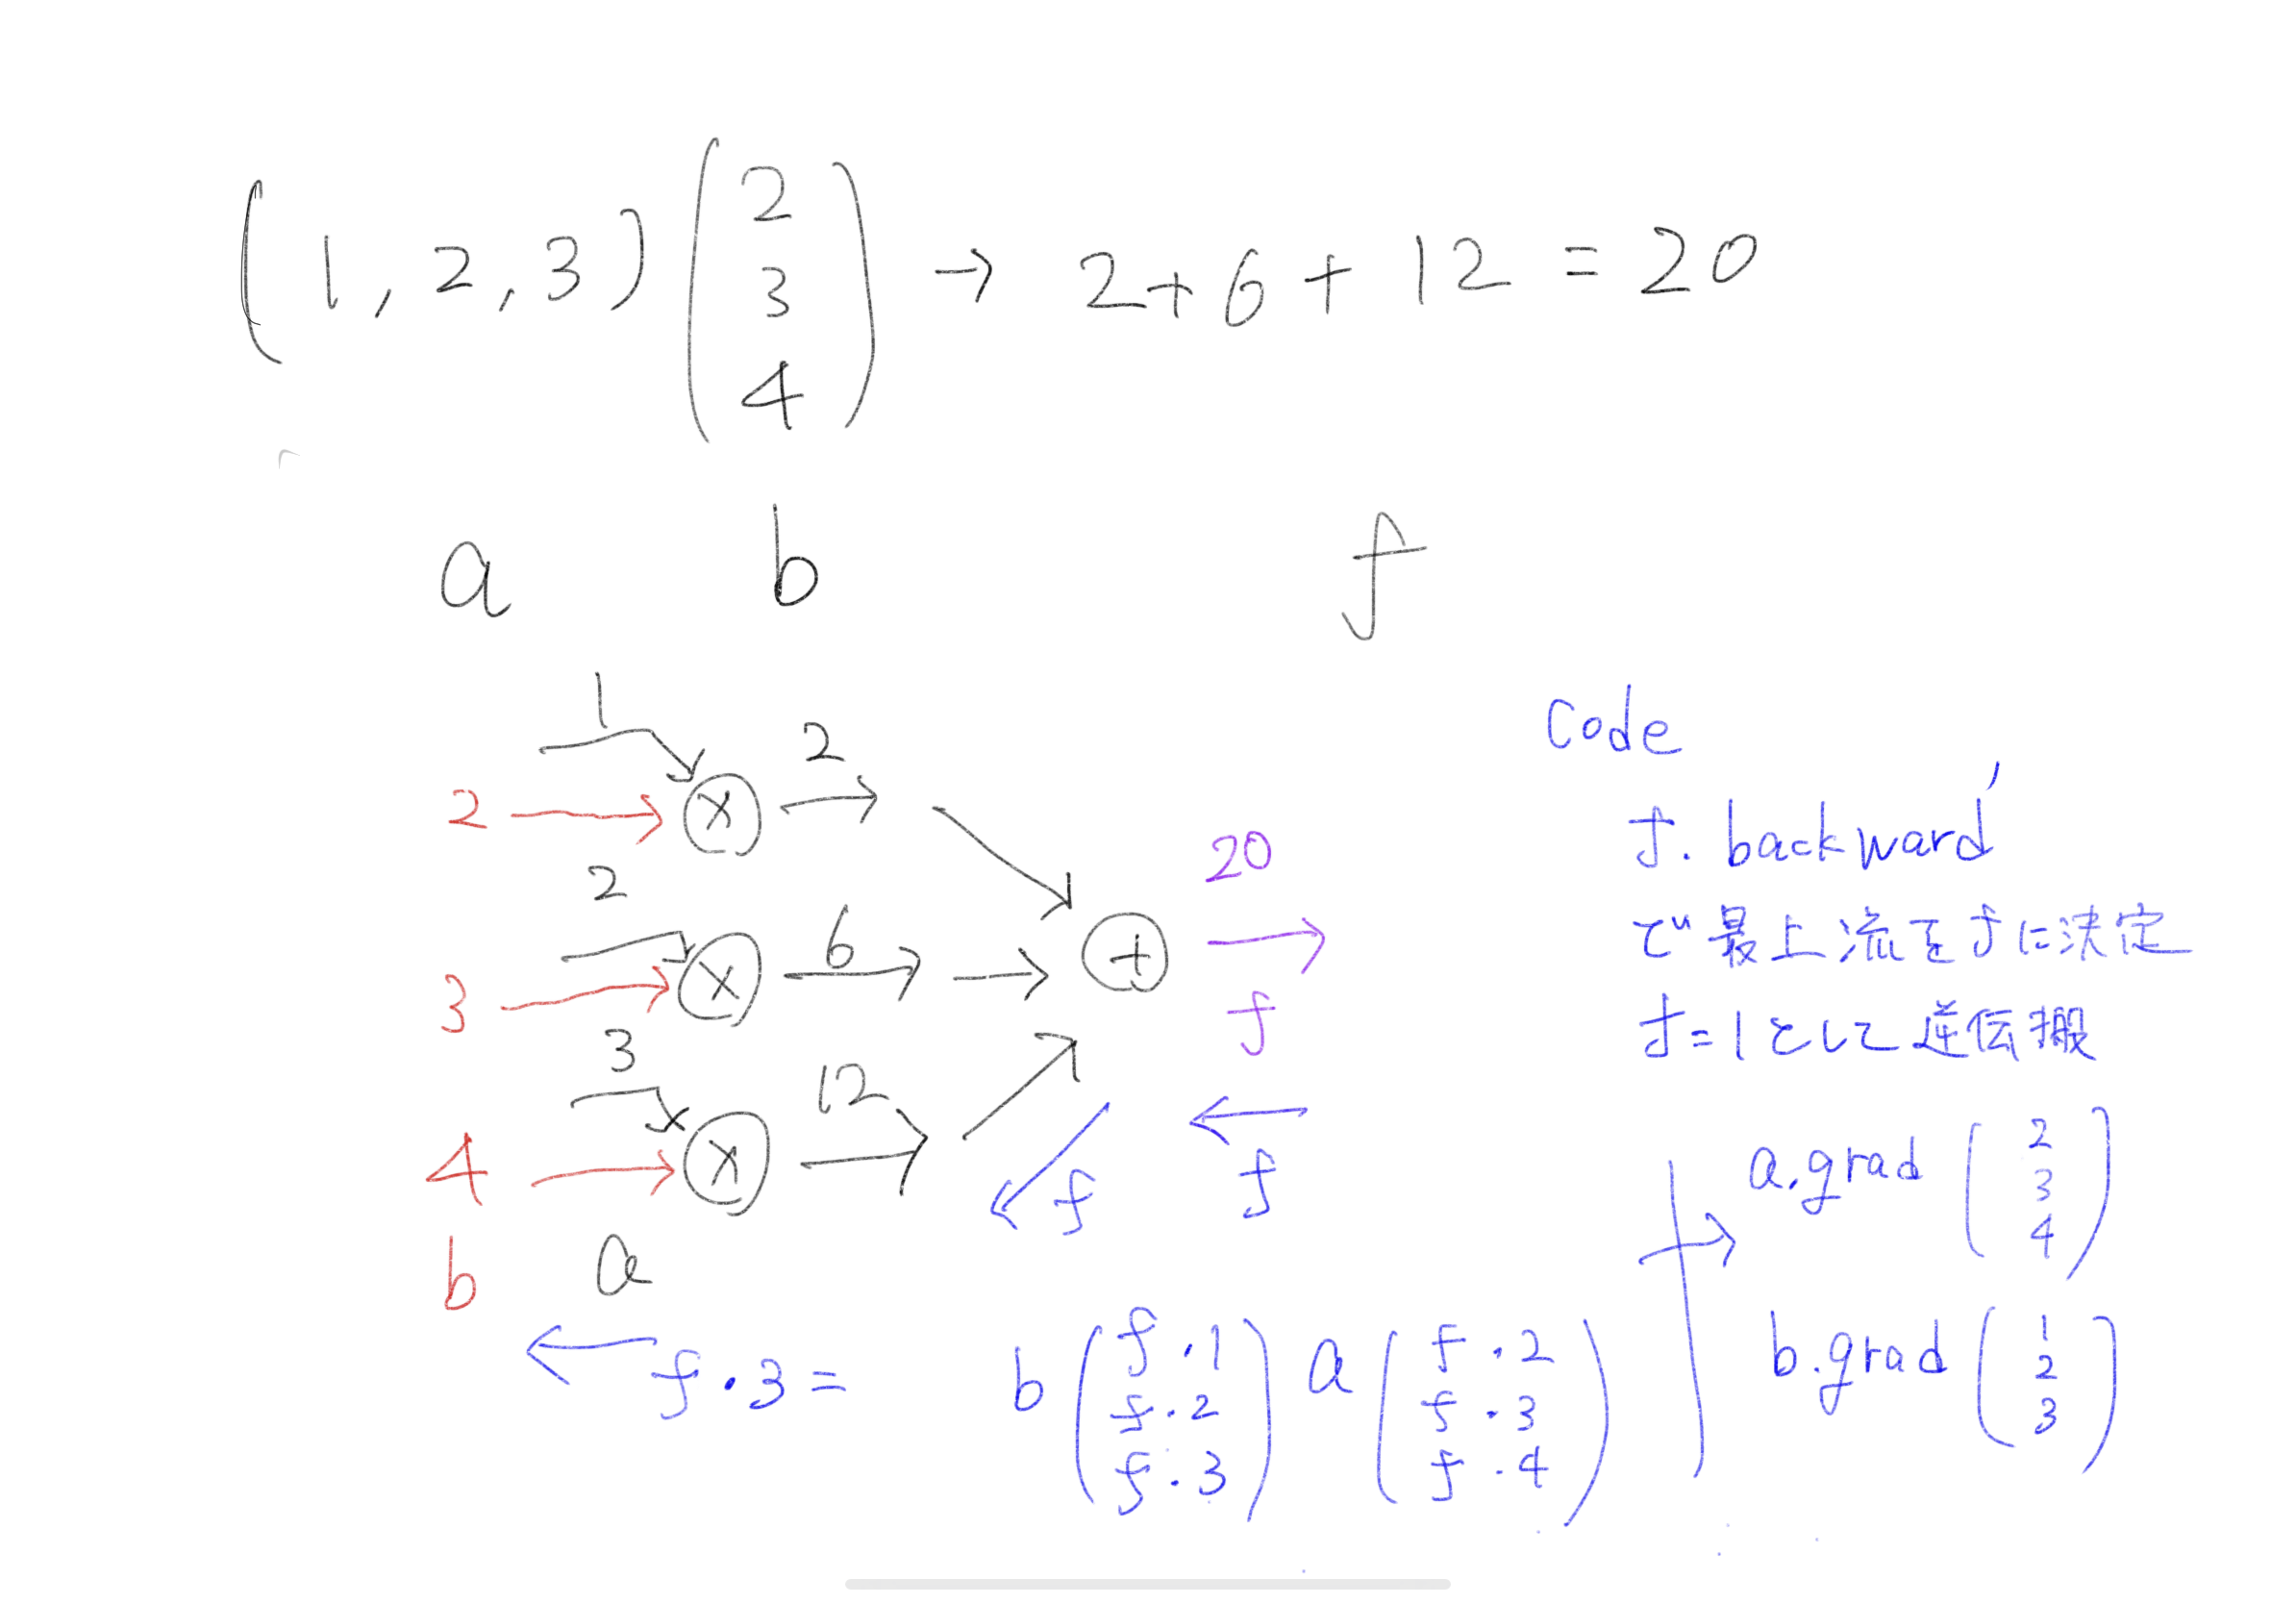 (1, 2, 3) ( 2 3 4 ) → 2 + 6 + 12 = 20
a b f
1
2 → ⊗ 2 →
2
3 → ⊗ 6 → → ⊕ 20 → f
3
4 → ⊗ 12 →
b a
← f
← f
← f・3 =
b ( f・1 f・2 f・3 ) a ( f・2 f・3 f・4 )
Code
f. backward
で最上流をfに決定
f=1として逆伝搬
→ a.grad ( 2 3 4 )
b.grad ( 1 2 3 )